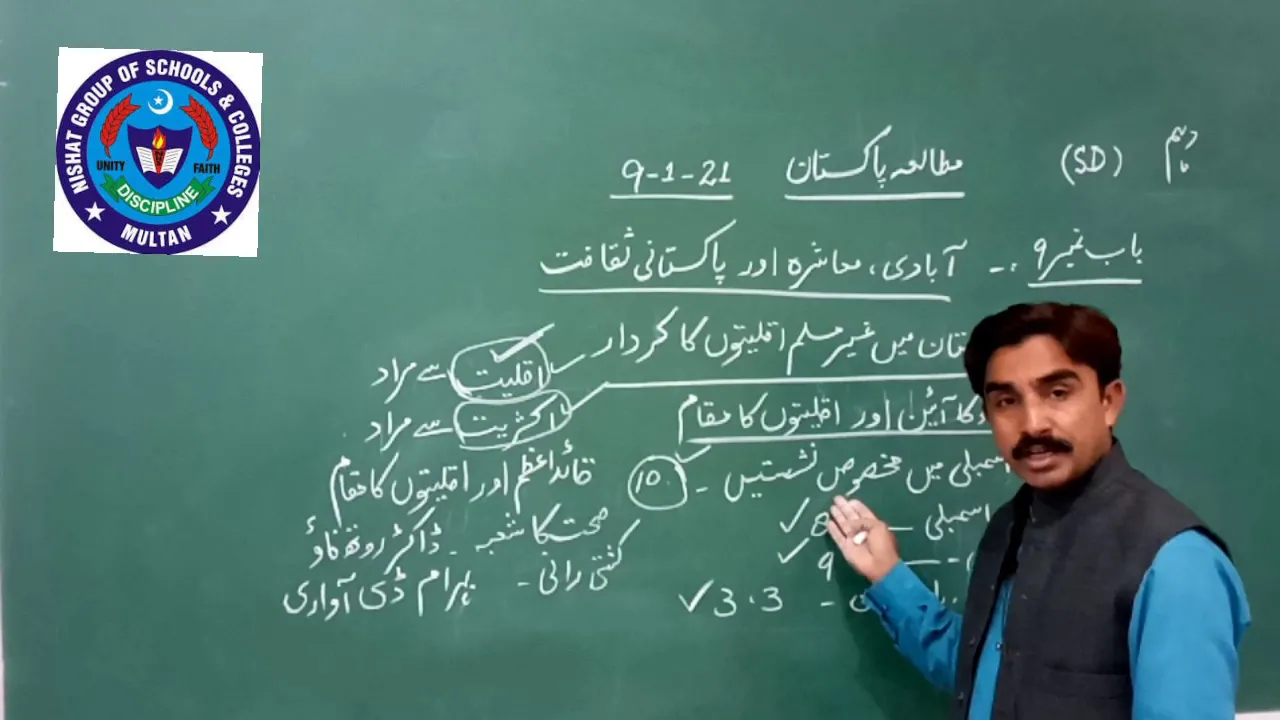 NISHAT GROUP OF SCHOOLS & COLLEGES
UNITY FAITH
DISCIPLINE
MULTAN
دہم (SD) مطالعہ پاکستان 9-1-21
باب نمبر ۹ :۔ آبادی، معاشرہ اور پاکستانی ثقافت
میں غیر مسلم اقلیتوں کا کردار
اقلیت سے مراد
اکثریت سے مراد
کا آئین اور اقلیتوں کا مقام
قائداعظم اور اقلیتوں کا مقام
اسمبلی میں مخصوص نشستیں - 10
اسمبلی — 8
9
3،3
صحت کا شعبہ - ڈاکٹر روتھ فاؤ
کشتی رانی - بہرام ڈی آواری